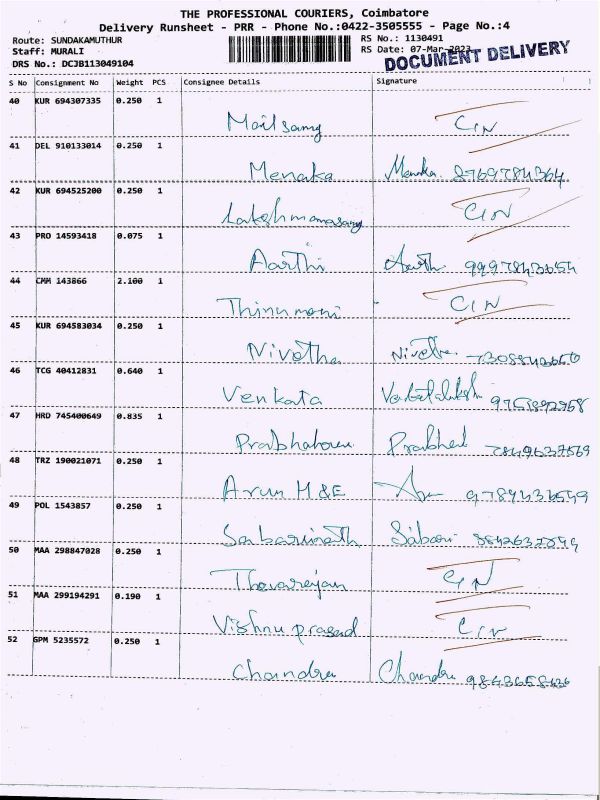 THE PROFESSIONAL COURIERS, Coimbatore
Delivery Runsheet - PRR - Phone No.:0422-3505555 - Page No.:4
Route: SUNDAKAMUTHUR RS No.: 1130491
Staff: MURALI RS Date: 07-Mar-2023
DRS No.: DCJB113049104 DOCUMENT DELIVERY
S No Consignment No Weight PCS Consignee Details Signature
40 KUR 694307335 0.250 1
Mailsamy CIN
41 DEL 910133014 0.250 1
Menaka Menaka 8769784364
42 KUR 694525200 0.250 1
Lakshmanasamy CIN
43 PRO 14593418 0.075 1
Aarthi Aarthi
44 CMM 143866 2.100 1
Thinumani CIN
45 KUR 694583034 0.250 1
Nivetha Nivetha
46 TCG 40412831 0.640 1
Venkata
47 HRD 745400649 0.835 1
48 TRZ 190021071 0.250 1
Arun M&E
49 POL 1543857 0.250 1
Sabarinath Sabari
50 MAA 298847028 0.250 1
CIN
51 MAA 299194291 0.190 1
Vishnu prasad CIN
52 GPM 5235572 0.250 1
Chandru Chandru